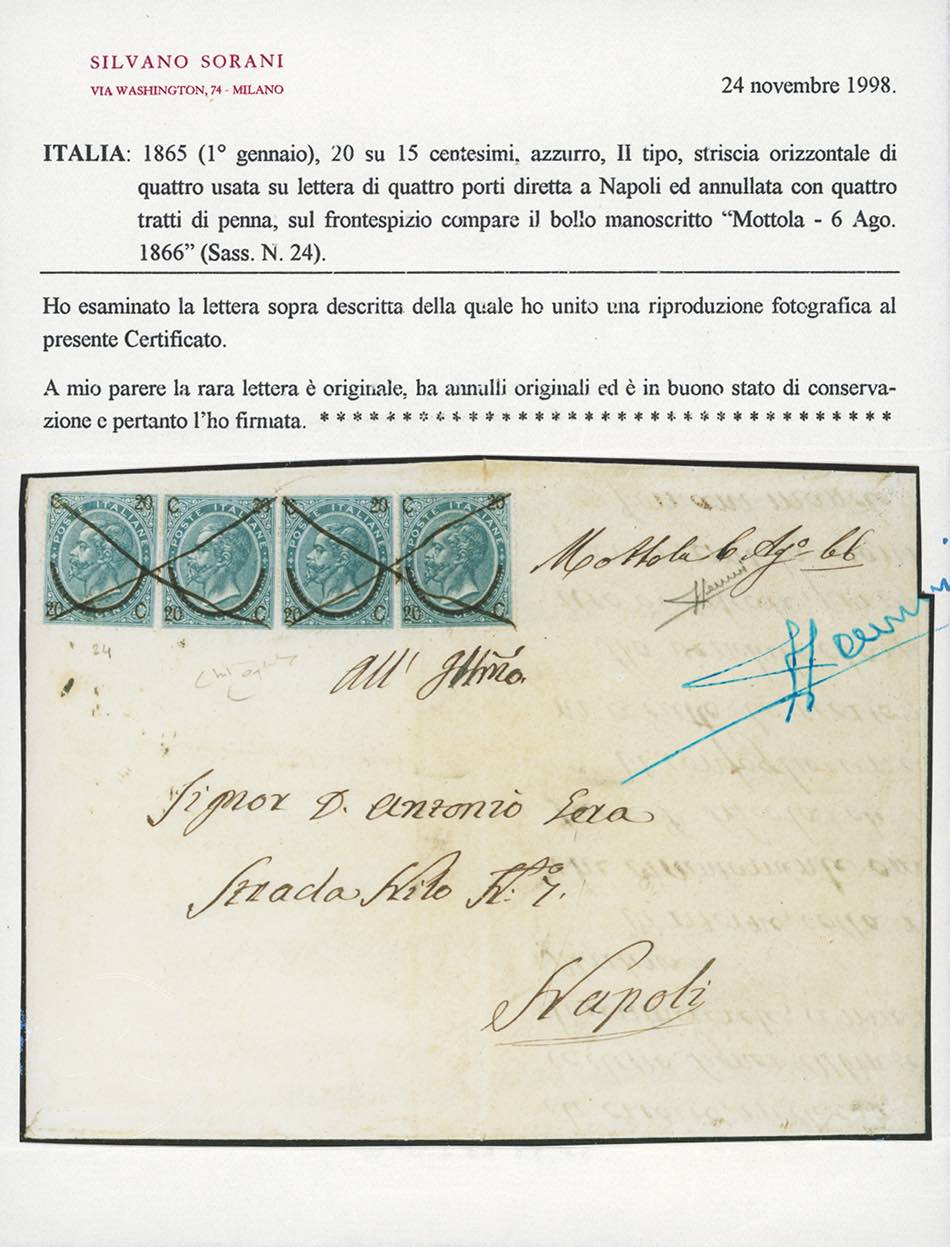 SILVANO SORANI
VIA WASHINGTON, 74 - MILANO
24 novembre 1998.
ITALIA: 1865 (1° gennaio), 20 su 15 centesimi, azzurro, II tipo, striscia orizzontale di
quattro usata su lettera di quattro porti diretta a Napoli ed annullata con quattro
tratti di penna, sul frontespizio compare il bollo manoscritto “Mottola - 6 Ago.
1866” (Sass. N. 24).
Ho esaminato la lettera sopra descritta della quale ho unito una riproduzione fotografica al
presente Certificato.
A mio parere la rara lettera è originale, ha annulli originali ed è in buono stato di conserva-
zione e pertanto l’ho firmata. * * * * * * * * * * * * * * * * * * * * * * * * * * * * * * * * * * *
C 20 C 20 C 20 C 20
POSTE ITALIANE POSTE ITALIANE POSTE ITALIANE POSTE ITALIANE
20 C 20 C 20 C 20 C
Mottola 6 Ago 66
24
All'
Signor D. Antonio
Strada Nilo N.º 7.
Napoli